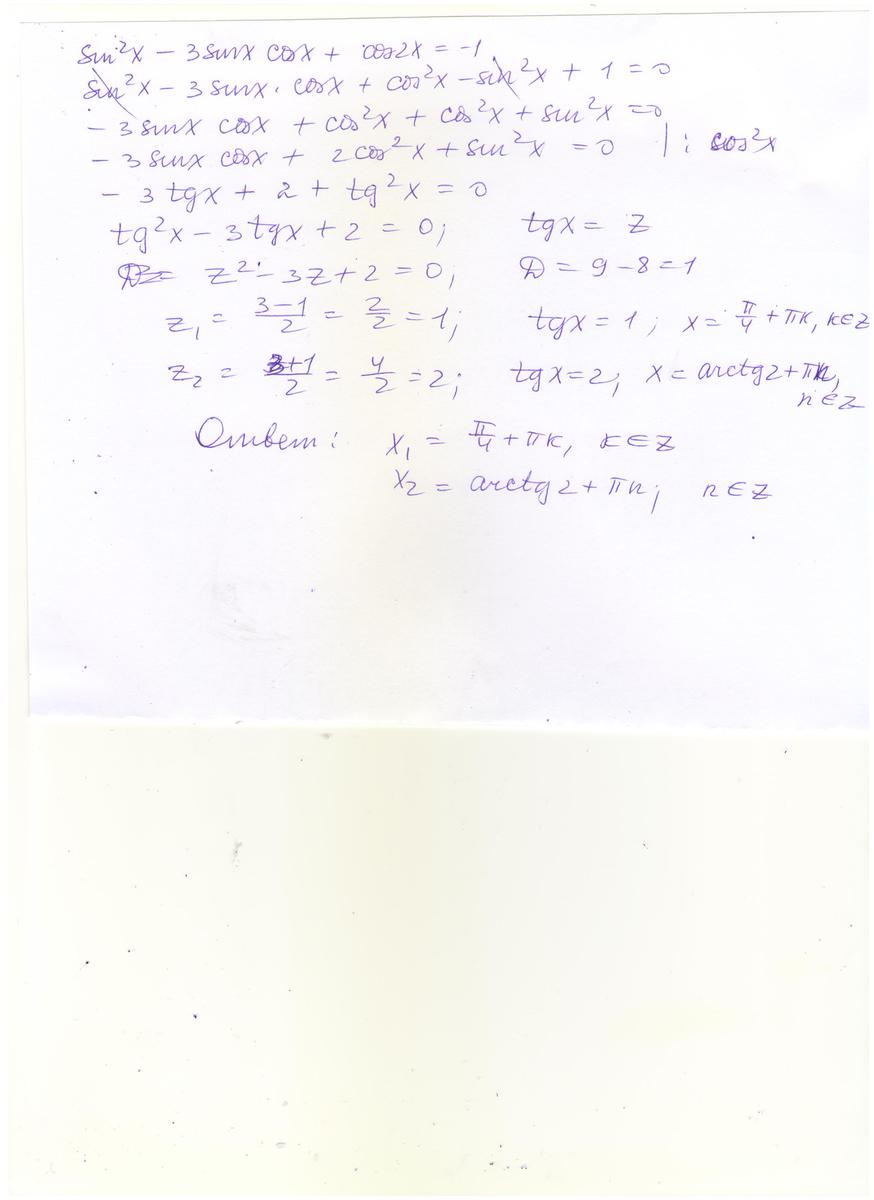 sin²x − 3 sinx cosx + cos2x = −1
sin²x − 3 sinx · cosx + cos²x − sin²x + 1 = 0
− 3 sinx cosx + cos²x + cos²x + sin²x = 0
− 3 sinx cosx + 2cos²x + sin²x = 0 | : cos²x
− 3 tgx + 2 + tg²x = 0
tg²x − 3tgx + 2 = 0; tgx = z
z² − 3z + 2 = 0; D = 9 − 8 = 1
z₁ = (3−1)/2 = 2/2 = 1; tgx = 1; x = π/4 + πk, k∈z
z₂ = (3+1)/2 = 4/2 = 2; tgx = 2; x = arctg2 + πn,
n∈z
Ответ: x₁ = π/4 + πk, k∈z
x₂ = arctg2 + πn; n∈z